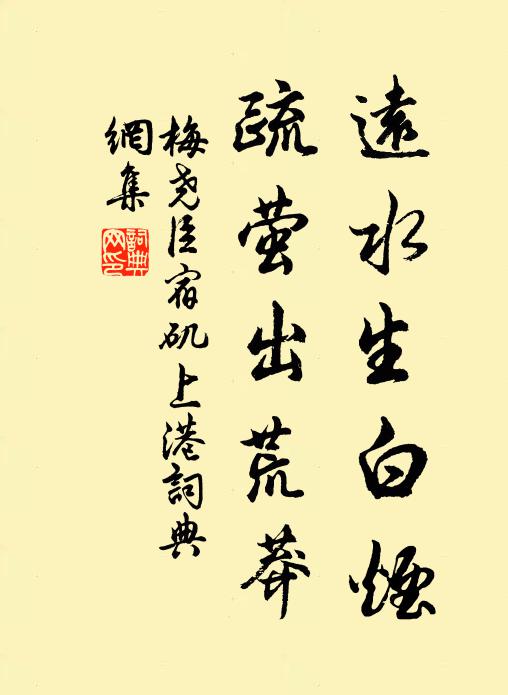 遠水生白煙
疏萤出荒莽
梅尧臣宿矶上港詞典
網集
詞典网印